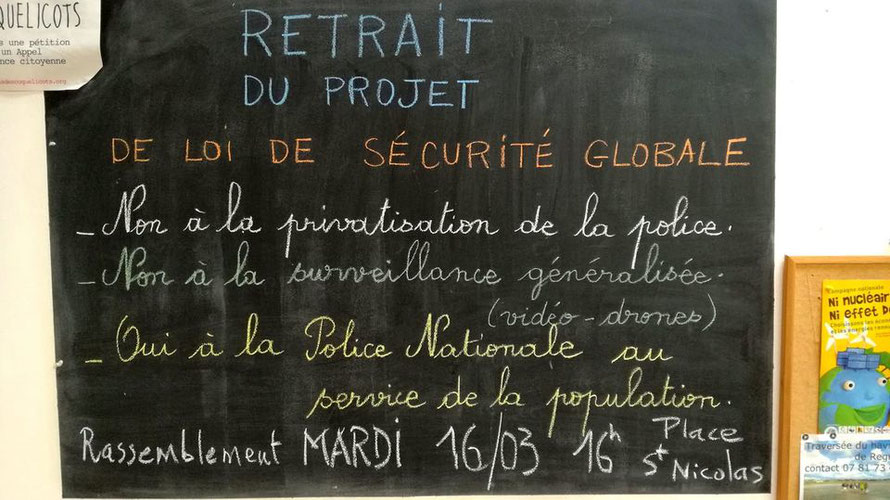 QUELICOTS
s une pétition
un Appel
nce citoyenne
RETRAIT
DU PROJET
DE LOI DE SÉCURITÉ GLOBALE
- Non à la privatisation de la police.
- Non à la surveillance généralisée.
(vidéo-drones)
- Oui à la Police Nationale au
service de la population.
Rassemblement MARDI 16/03 16h Place
St Nicolas
Campagne nationale
Ni nucléair
Ni effet de
Traversée du hav
de Reg
contact 07 81 73 8